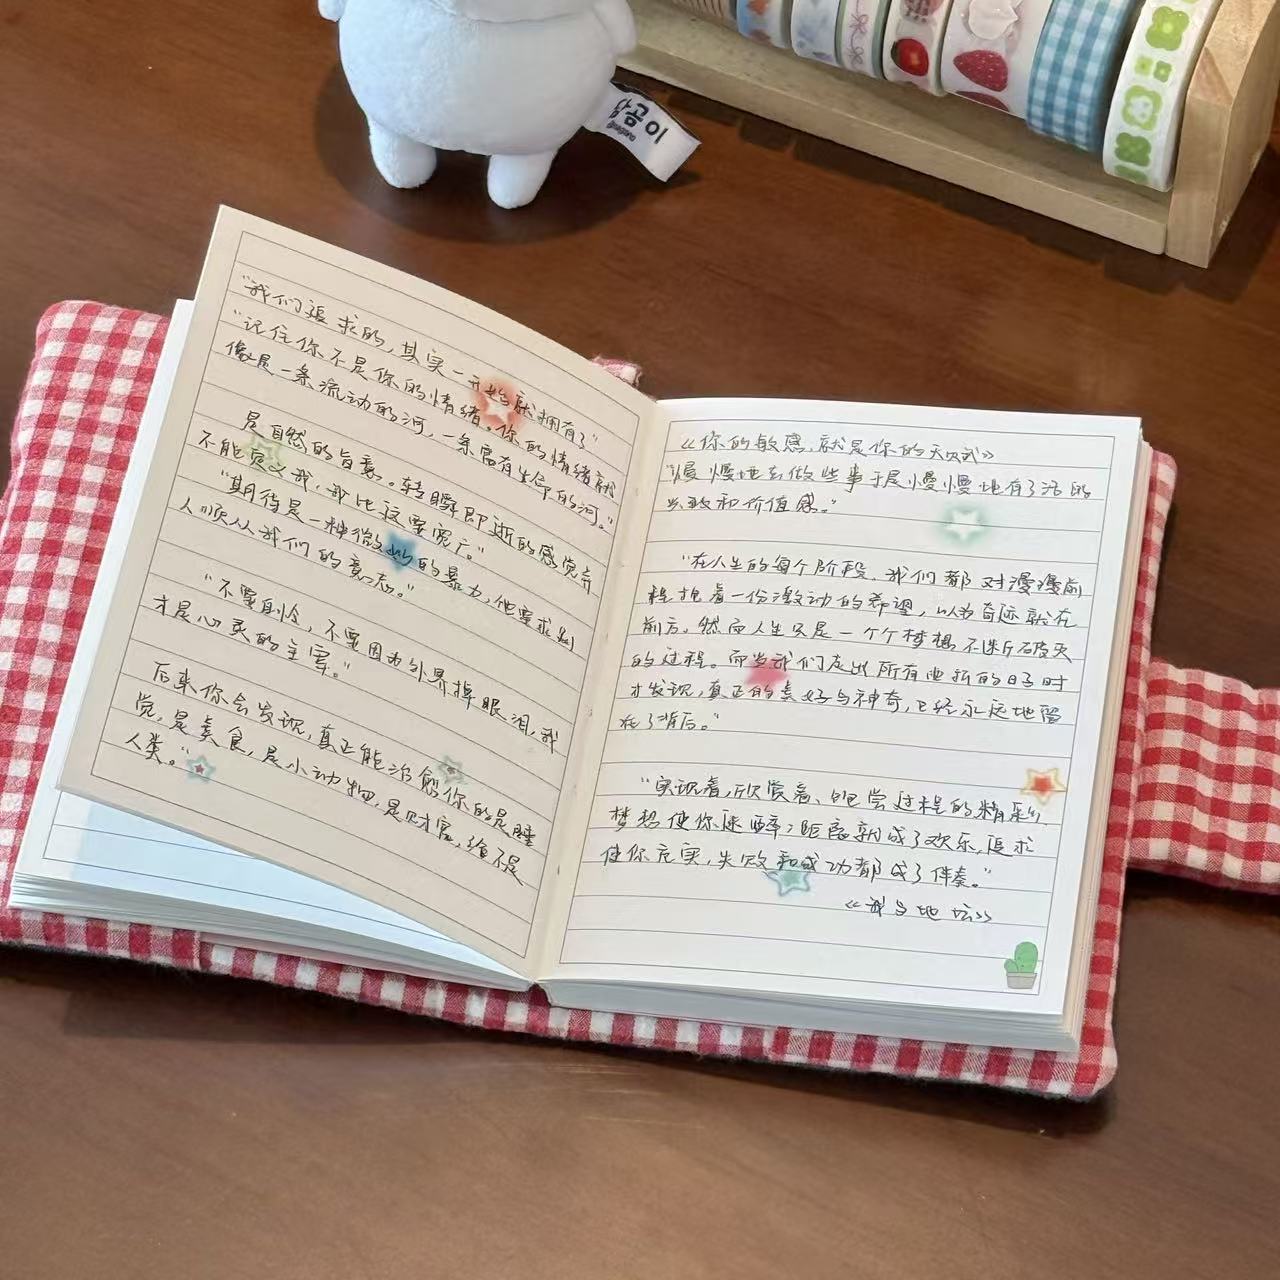 담곰이
"我们追求的，其实一开始就拥有了"
"记住你不是你的情绪。你的情绪就
像是一条流动的河，一条富有生命的河。"
是自然的旨意。转瞬即逝的感觉并
不能定义我，我比这要宽广。"
"期待是一种微妙的暴力，他要求别
人顺从我们的意志。"
"不要自怜，不要因为外界掉眼泪，我
才是心灵的主宰。"
后来你会发现，真正能治愈你的是睡
觉，是美食，是小动物，是财富，绝不是
人类。"
《你的敏感，就是你的天赋》
"慢慢地去做些事于是慢慢地有了活的
兴致和价值感。"
"在人生的每个阶段，我们都对漫漫前
程抱着一份激动的希望，以为奇迹就在
前方。然而人生只是一个个梦想不断破灭
的过程。而当我们走出所有曲折的日子时
才发现，真正的美好与神奇，已经永远地留
在了背后。"
"实现着，欣赏着、饱尝过程的精彩，
梦想使你迷醉；距离就成了欢乐，追求
使你充实，失败和成功都成了伴奏。"
《我与地坛》